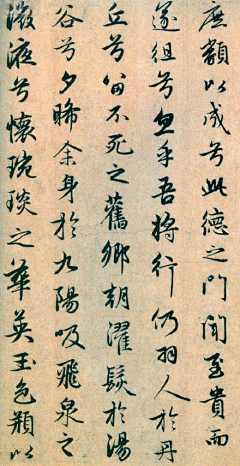 庶類以成兮此德之門聞至貴而
遂徂兮忽乎吾將行仍羽人於丹
丘兮留不死之舊鄉朝濯髮於湯
谷兮夕晞余身於九陽吸飛泉之
微液兮懷琬琰之華英玉色頩以